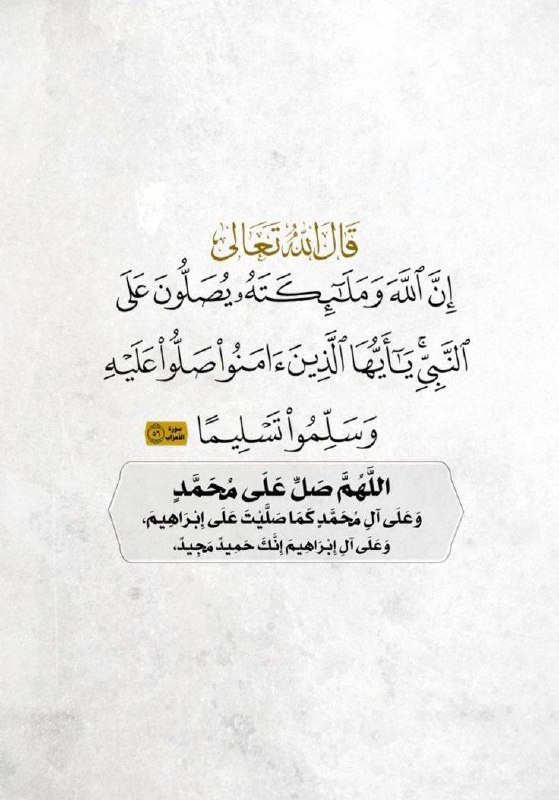 قَالَ اللهُ تَعَالَى
إِنَّ ٱللَّهَ وَمَلَٰٓئِكَتَهُۥ يُصَلُّونَ عَلَى
ٱلنَّبِيِّۚ يَٰٓأَيُّهَا ٱلَّذِينَ ءَامَنُوا۟ صَلُّوا۟ عَلَيْهِ
وَسَلِّمُوا۟ تَسْلِيمًا ٥٦ سورة الأحزاب
اللَّهُمَّ صَلِّ عَلَى مُحَمَّدٍ
وَعَلَى آلِ مُحَمَّدٍ كَمَا صَلَّيْتَ عَلَى إِبْرَاهِيمَ،
وَعَلَى آلِ إِبْرَاهِيمَ إِنَّكَ حَمِيدٌ مَجِيدٌ،